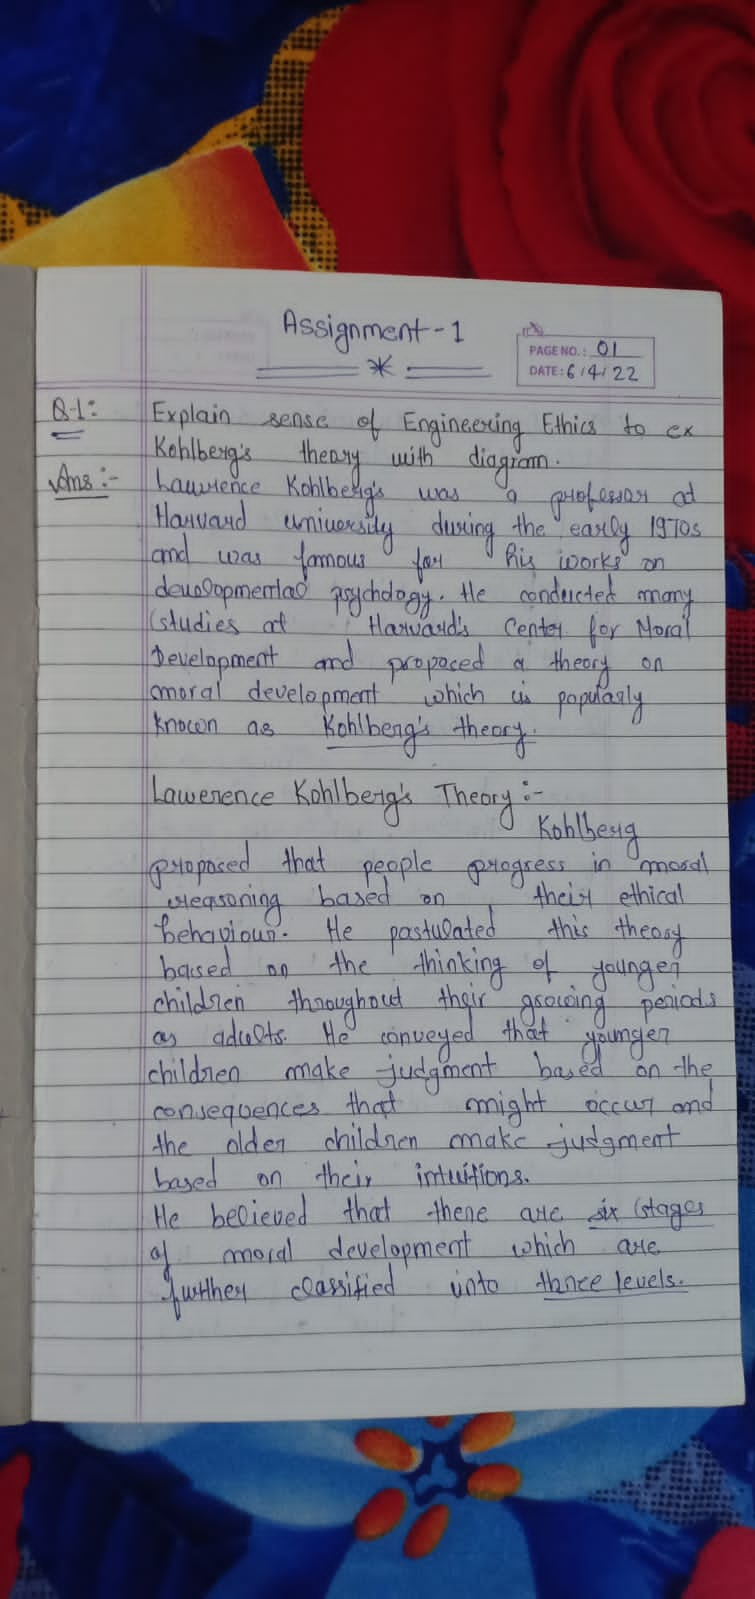 Assignment-1
PAGE NO.: 01
DATE: 6/4/22
Q-1:
Explain sense of Engineering Ethics to ex
Kohlberg's theory with diagram.
Ans:-
Lawrence Kohlberg's was a professor at
Harvard university during the early 1970s
and was famous for his works on
developmental psychology. He conducted many
studies at Harvard's Center for Moral
Development and propoced a theory on
moral development which is popularly
known as Kohlberg's theory.
Lawerence Kohlberg's Theory:-
Kohlberg
proposed that people progress in moral
reasoning based on their ethical
behaviour. He pastulated this theory
based on the thinking of younger
children throughout their growing periods
as adults. He conveyed that younger
children make judgment based on the
consequences that might occur and
the older children make judgment
based on their intuitions.
He believed that there are six stages
of moral development which are
further classified into three levels.